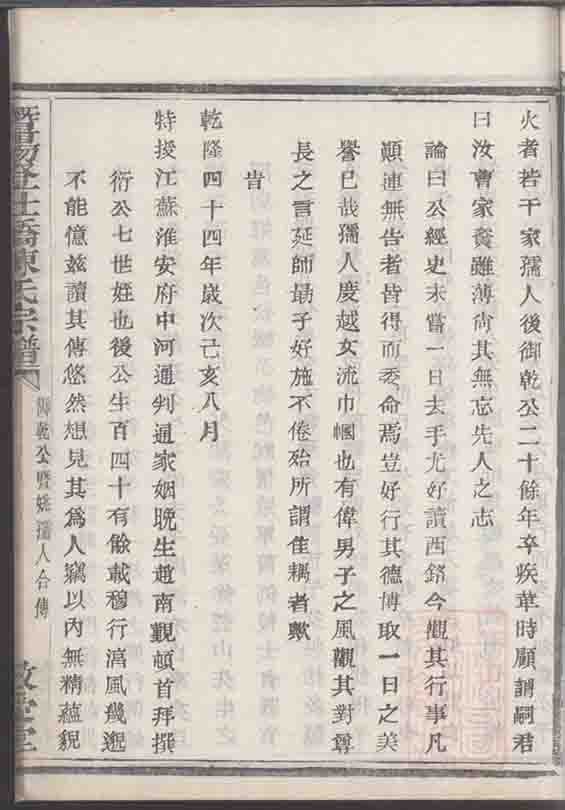 火者若干家孺人後御乾公二十餘年卒疾革時顧謂嗣君
曰汝曹家貲雖薄尙其無忘先人之志
論曰公經史未嘗一日去手尤好讀西銘今觀其行事凡
顚連無告者皆得而委命焉豈好行其德博取一日之美
譽已哉孺人慶越女流巾幗也有偉男子之風觀其對尊
長之言延師勗子好施不倦殆所謂佳耦者歟
旹
乾隆四十四年歲次己亥八月
特授江蘇淮安府中河通判通家姻晚生趙南覲頓首拜撰
衍公七世姪也後公生百四十有餘載穆行滈風幾邈
不能憶玆讀其傳悠然想見其爲人竊以內無精蘊貌
暨陽登仕橋陳氏宗譜
御乾公曁姚孺人合傳
敦堂